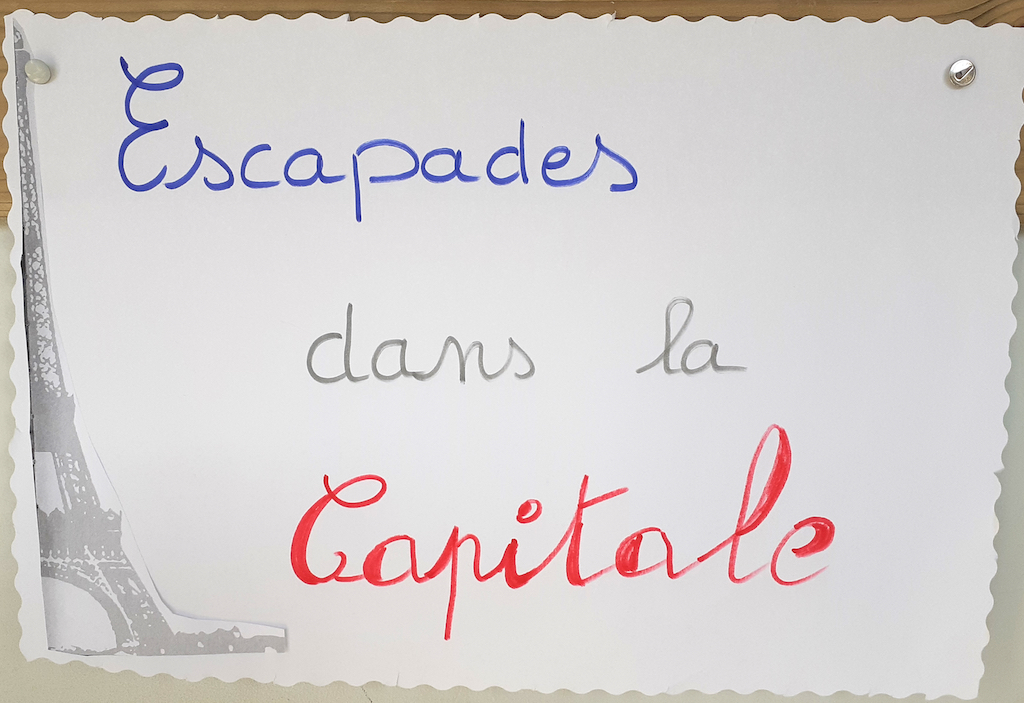 Escapades
dans la
Capitale